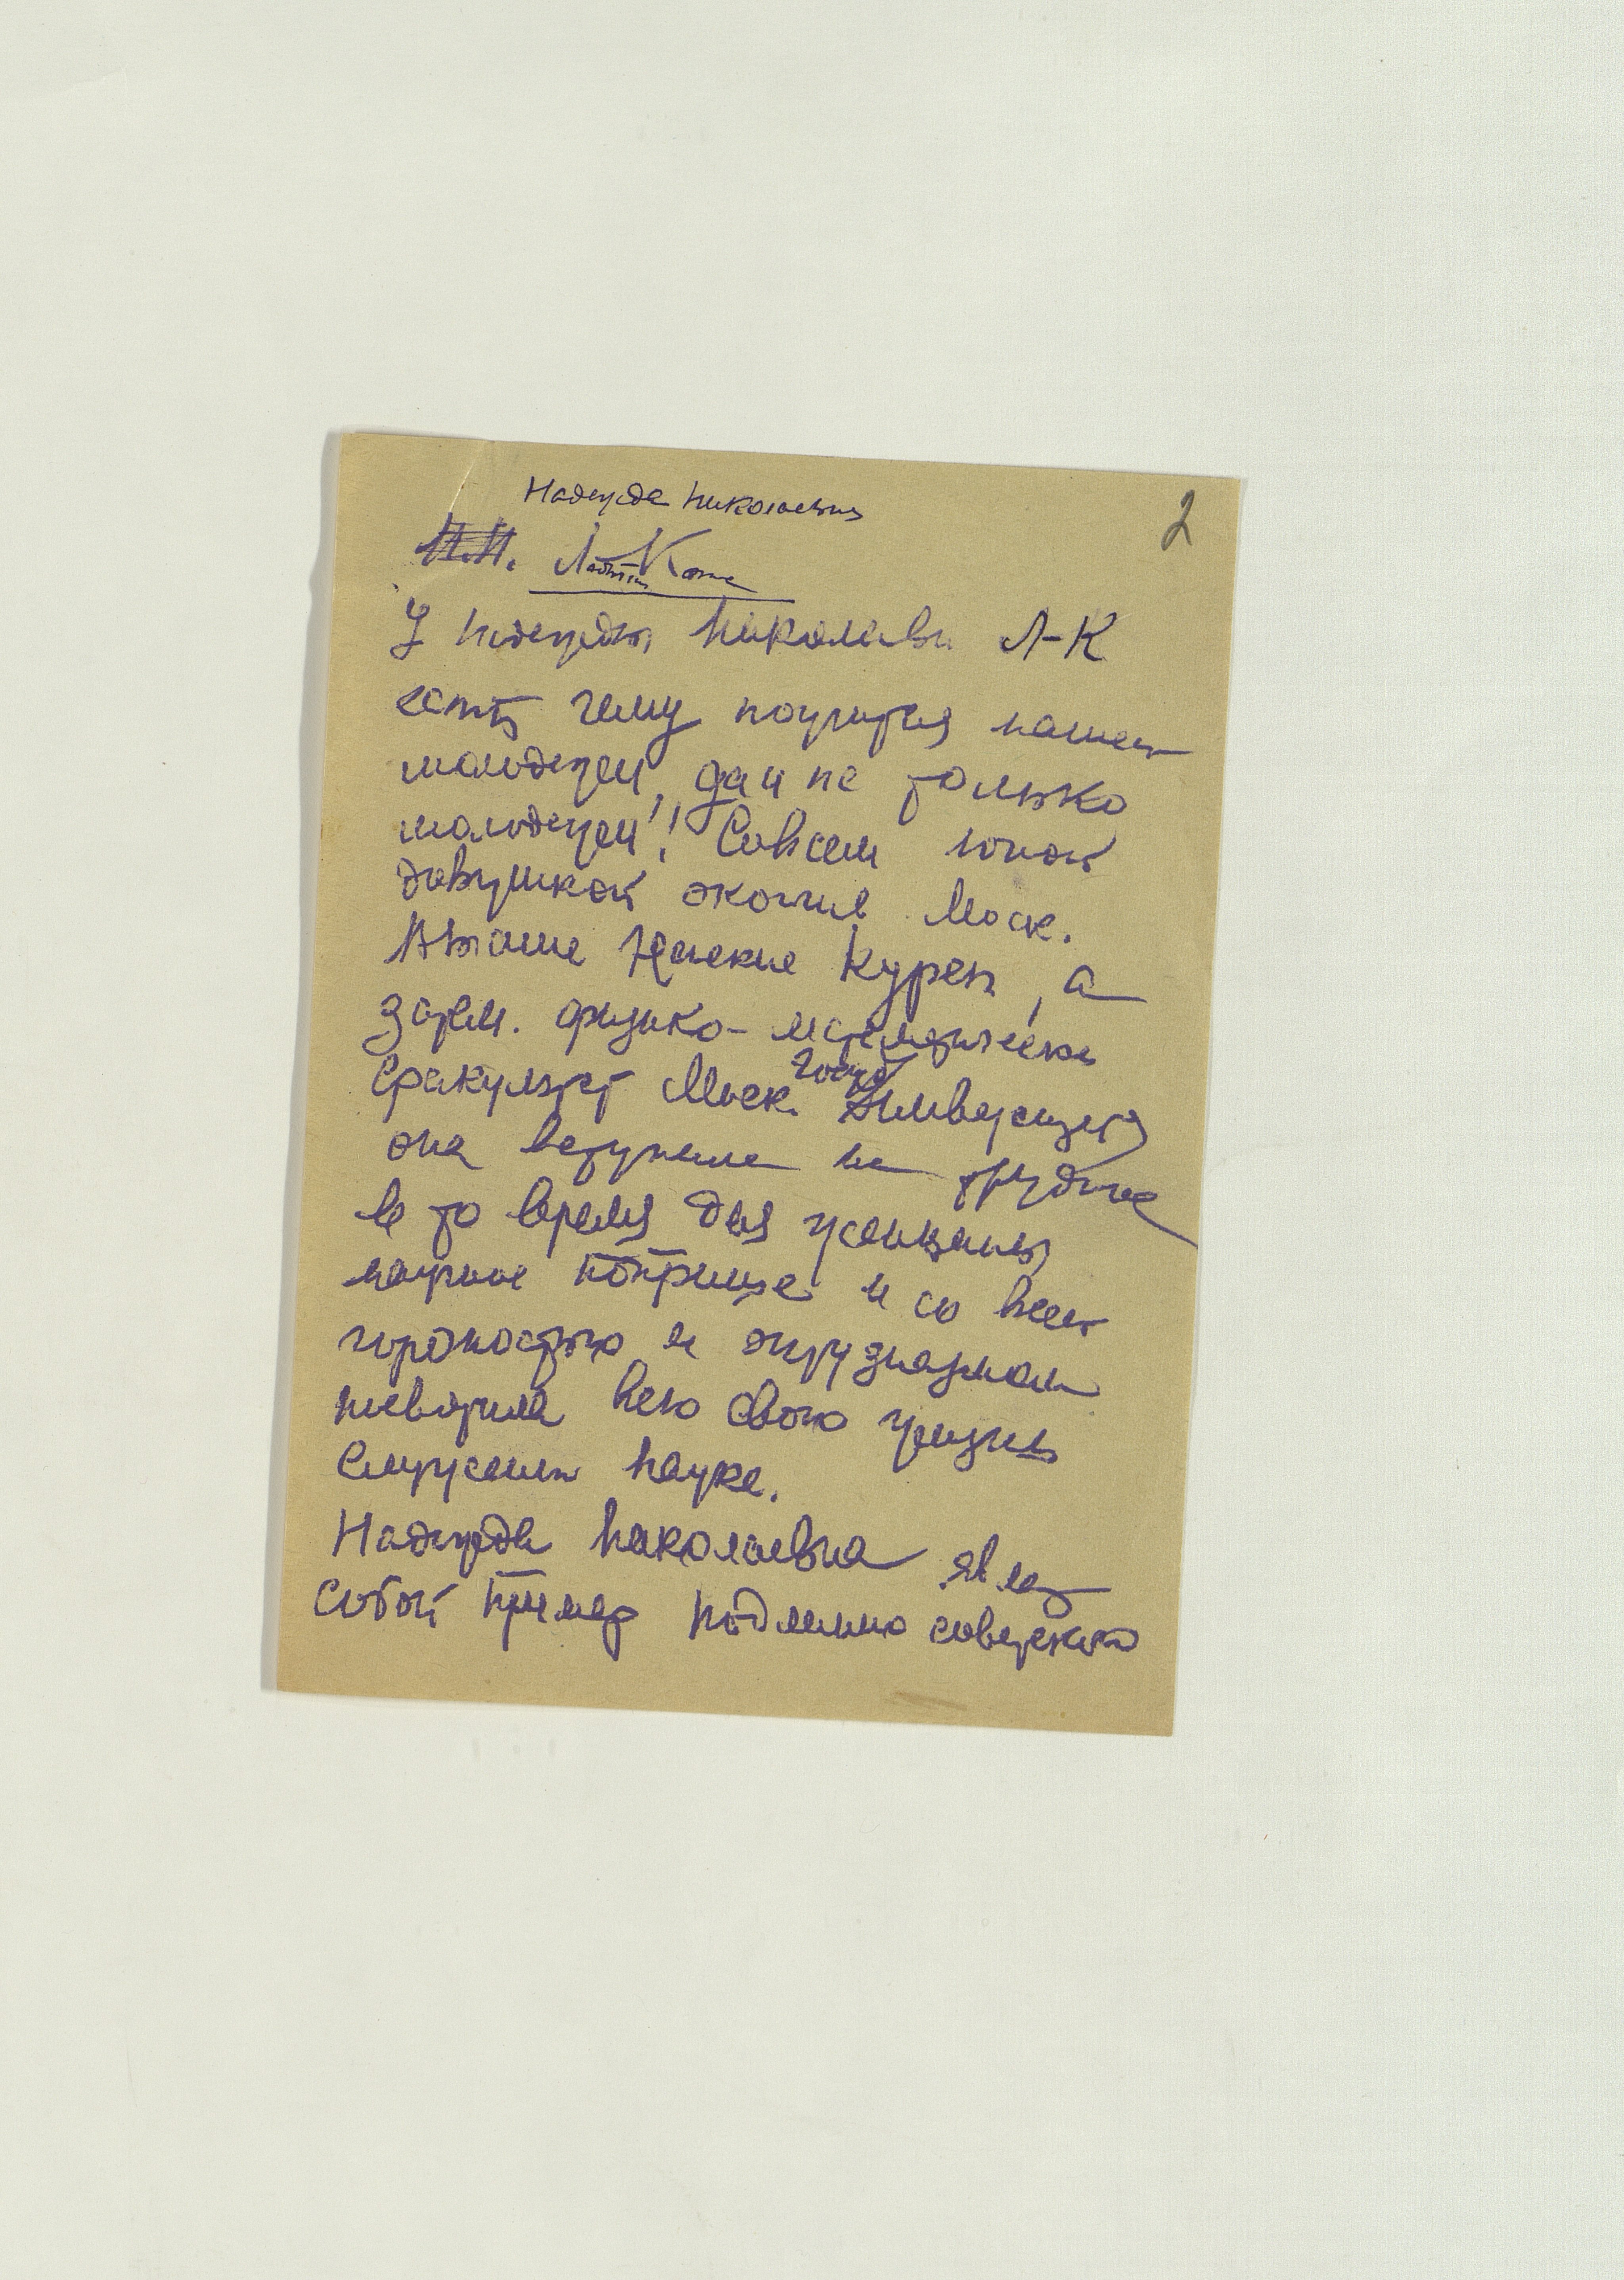 Надежда Николаевна
2
Н.Н. Ладыгина Котс
У Надежды Николаевн Л-К
есть чему поучиться нашей
молодежи, да и не только
молодежи!! Совсем юной
девушкой окончив Моск.
Высшие Женские Курсы, а
затем. физико-математическ
факультет Моск. госуд Университета
она вступила на трудное
в то время для женщины
научное поприще и со всей
гордостью и энтузиазмом
посвятила всю свою жизнь
служению науке.
Надежда Николаевна являет
собой пример подлинно советского